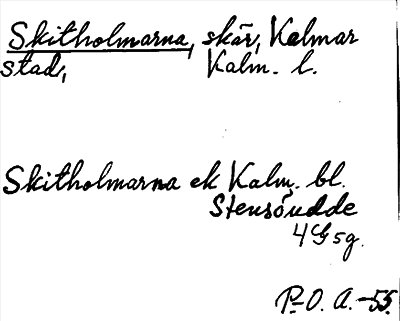 Skitholmarna, skär, Kalmar
stad, Kalm. l.
Skitholmarna ek Kalm. bl.
Stensöudde
4G5g.
P-O. A. -55.